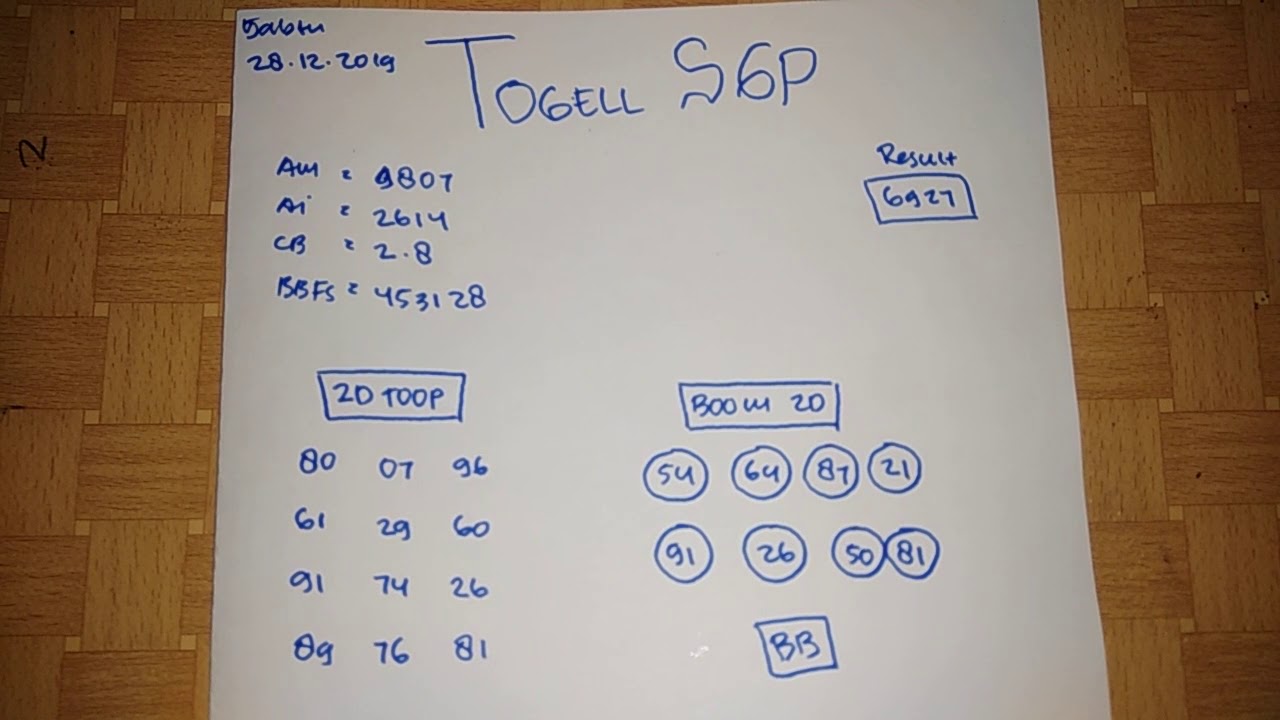 Sabtu
28.12.2019
TOGELL SGP
Result
6927
AM = 9807
Ai = 2614
CB = 2.8
BBFS = 453128
2D TOOP
80 07 96
61 29 60
91 74 26
89 76 81
BOOM 2D
54 64 87 21
91 26 50 81
BB
N